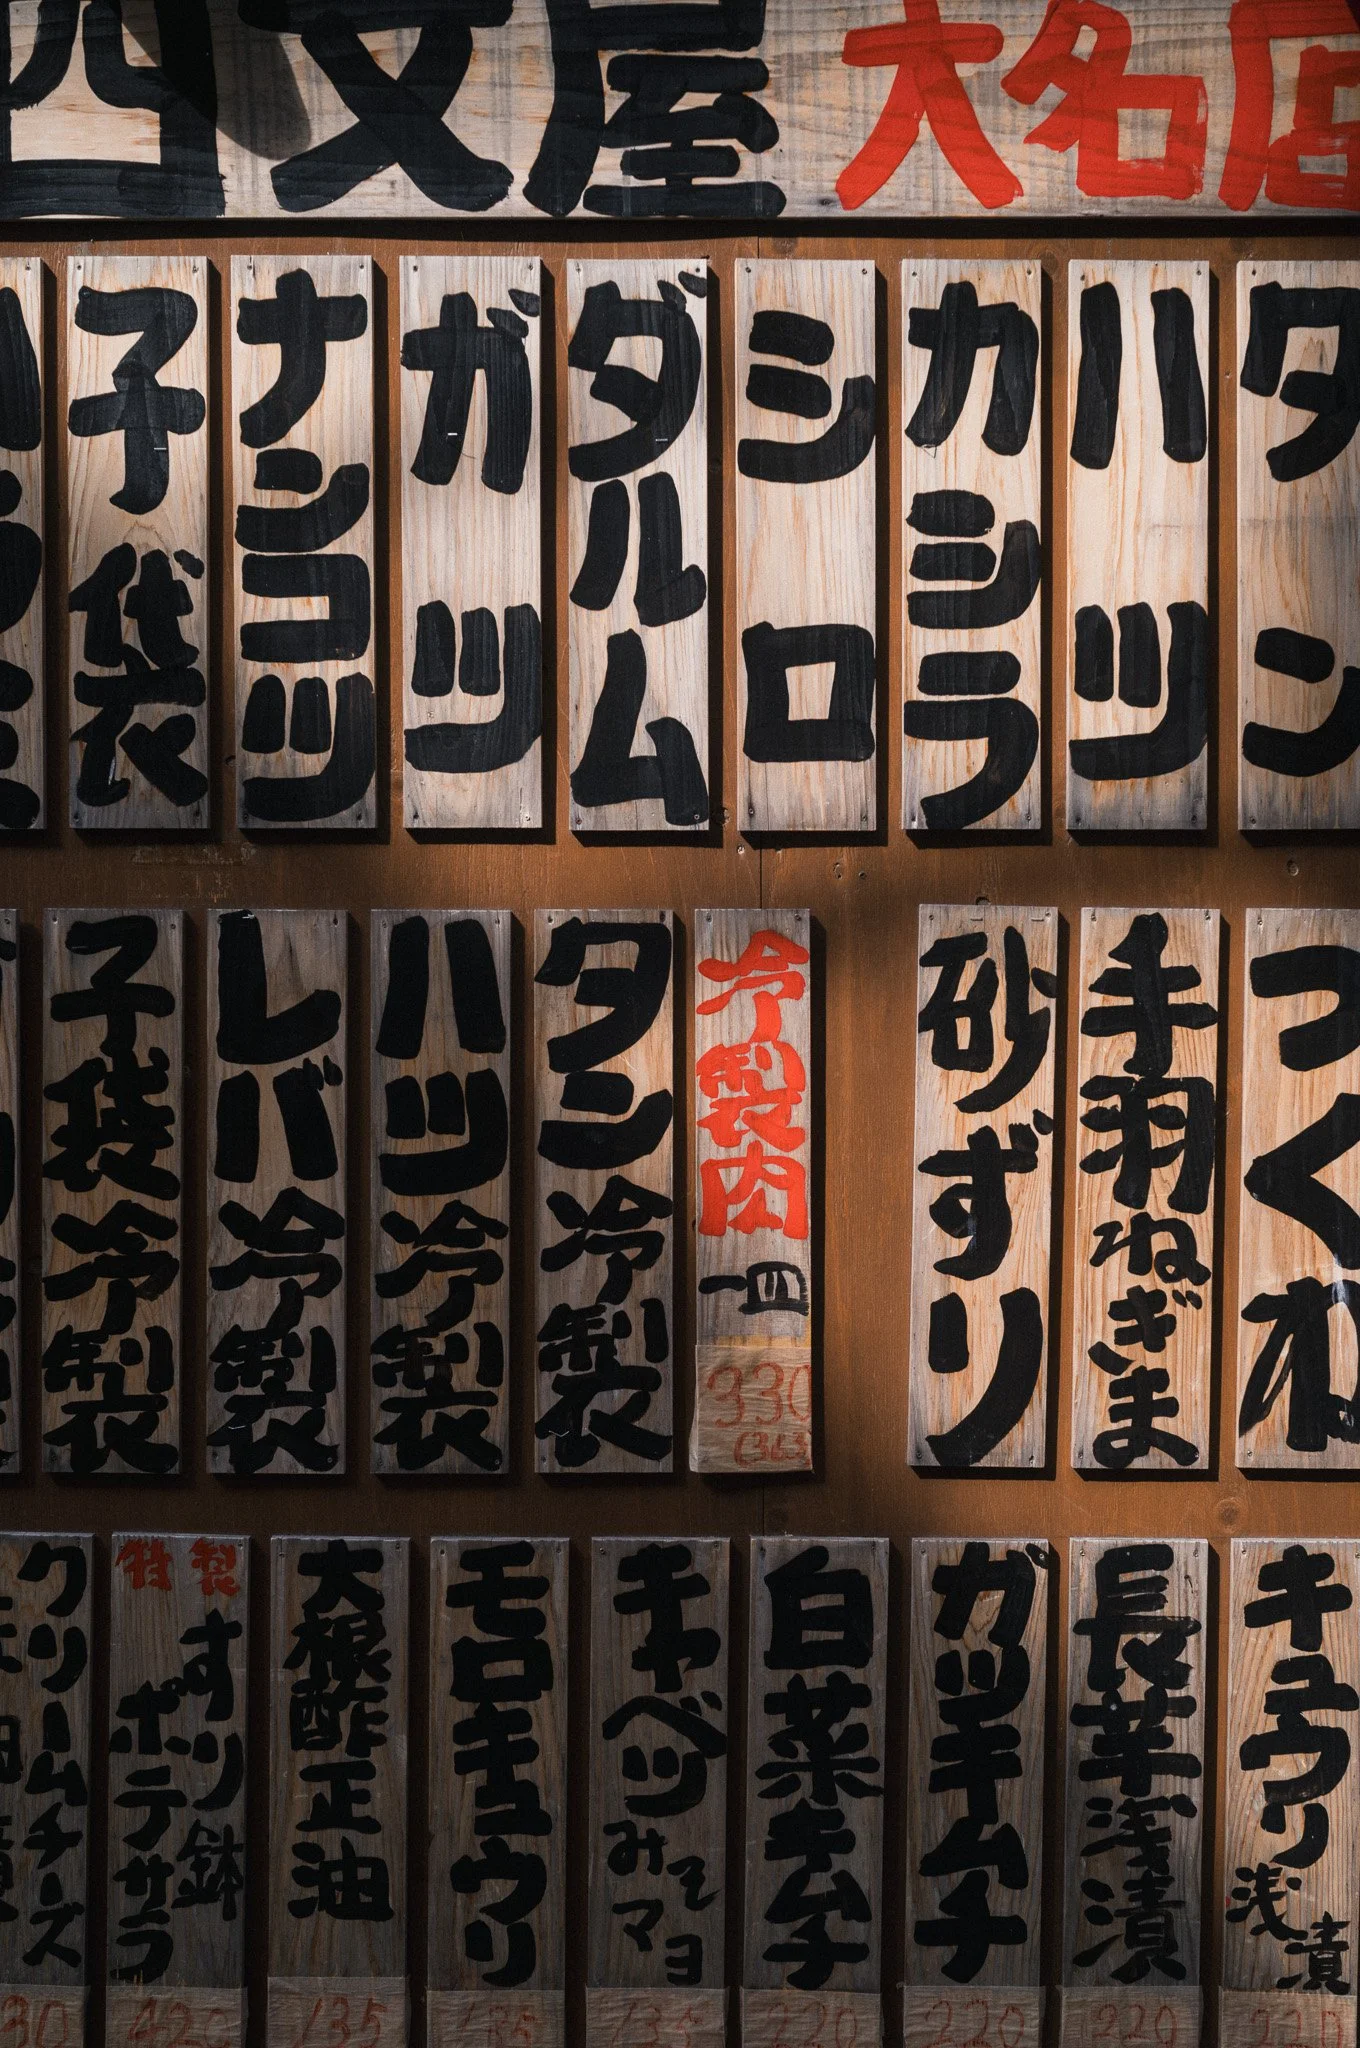 四文屋 大名店
タン
ハツ
カシラ
シロ
ダルム
ガツ
ナンコツ
子袋
つくね
手羽ねぎま
砂ずり
冷製肉
一皿
330
(363)
タン冷製
ハツ冷製
レバ冷製
子袋冷製
キュウリ浅漬
220
長芋浅漬
220
ガツキムチ
220
白菜キムチ
220
キャベツみそマヨ
135
モロキュウリ
135
大根酢正油
135
特製
すり鉢
ポテサラ
420
クリームチーズ
30